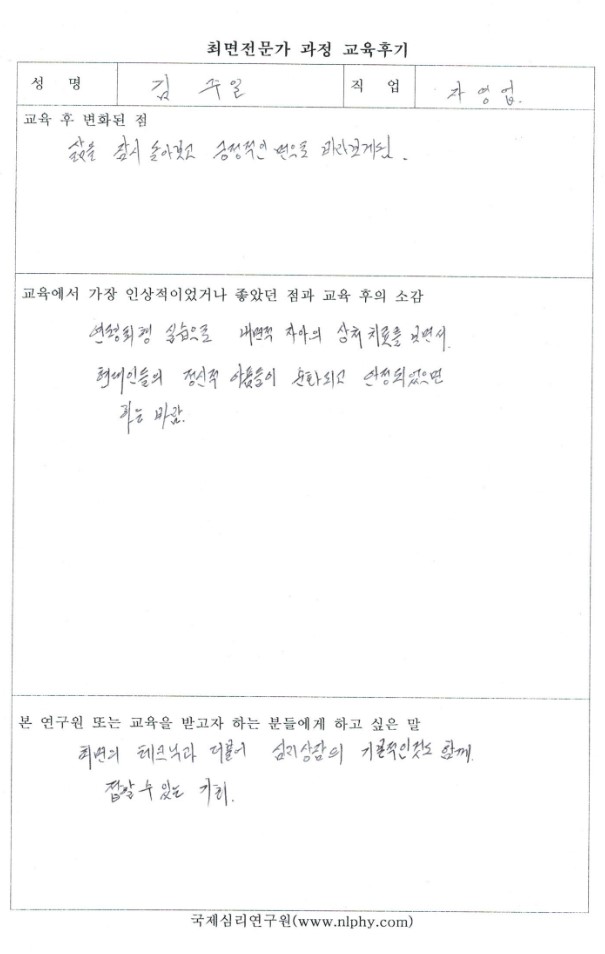 최면전문가 과정 교육후기
성 명 김 주일 직 업 자영업.
교육 후 변화된 점
삶을 잠시 돌아보고 긍정적인 면으로 바라보게됨.
교육에서 가장 인상적이었거나 좋았던 점과 교육 후의 소감
연령퇴행 실습으로 내면적 자아의 상처 치료를 보면서.
현대인들의 정신적 아픔들이 순화되고 안정되었으면
하는 바람.
본 연구원 또는 교육을 받고자 하는 분들에게 하고 싶은 말
최면의 테크닉과 더불어 심리상담의 기본적인것도 함께.
접할 수 있는 기회.
국제심리연구원(www.nlphy.com)